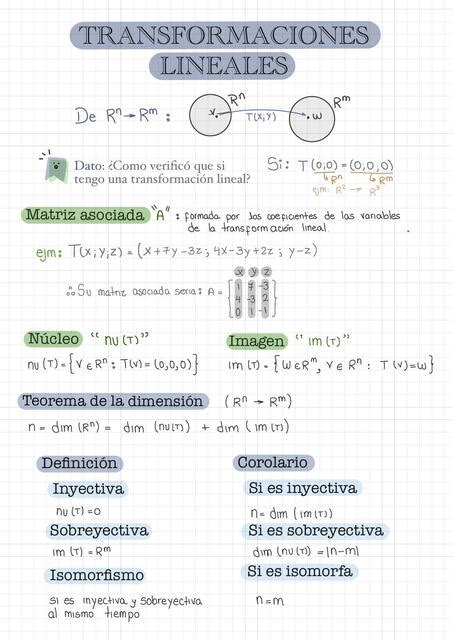 TRANSFORMACIONES
LINEALES
De Rⁿ→Rᵐ :
v
Rⁿ
T(x;y)
w
Rᵐ
Dato: ¿Como verificó que si
tengo una transformación lineal?
Si: T(0;0) = (0,0,0)
↳Rⁿ ↳Rᵐ
ejm: R² → R³
Matriz asociada "A" : formada por los coeficientes de las variables
de la transformación lineal.
ejm: T(x;y;z) = (x+7y-3z ; 4x-3y+2z ; y-z)
x y z
∴ Su matriz asociada seria: A =
1 7 -3
4 -3 2
0 1 -1
Núcleo " nu(T)"
nu(T) = {v ∈ Rⁿ : T(v) = (0,0,0)}
Imagen " im(T)"
im(T) = {w∈Rᵐ, v ∈ Rⁿ : T(v)=w}
Teorema de la dimensión (Rⁿ → Rᵐ)
n = dim(Rⁿ) = dim(nu(T)) + dim(im(T))
Definición
Inyectiva
nu(T)=0
Sobreyectiva
im(T) = Rᵐ
Isomorfismo
si es inyectiva y sobreyectiva
al mismo tiempo
Corolario
Si es inyectiva
n= dim(im(T))
Si es sobreyectiva
dim(nu(T)) = |n-m|
Si es isomorfa
n=m